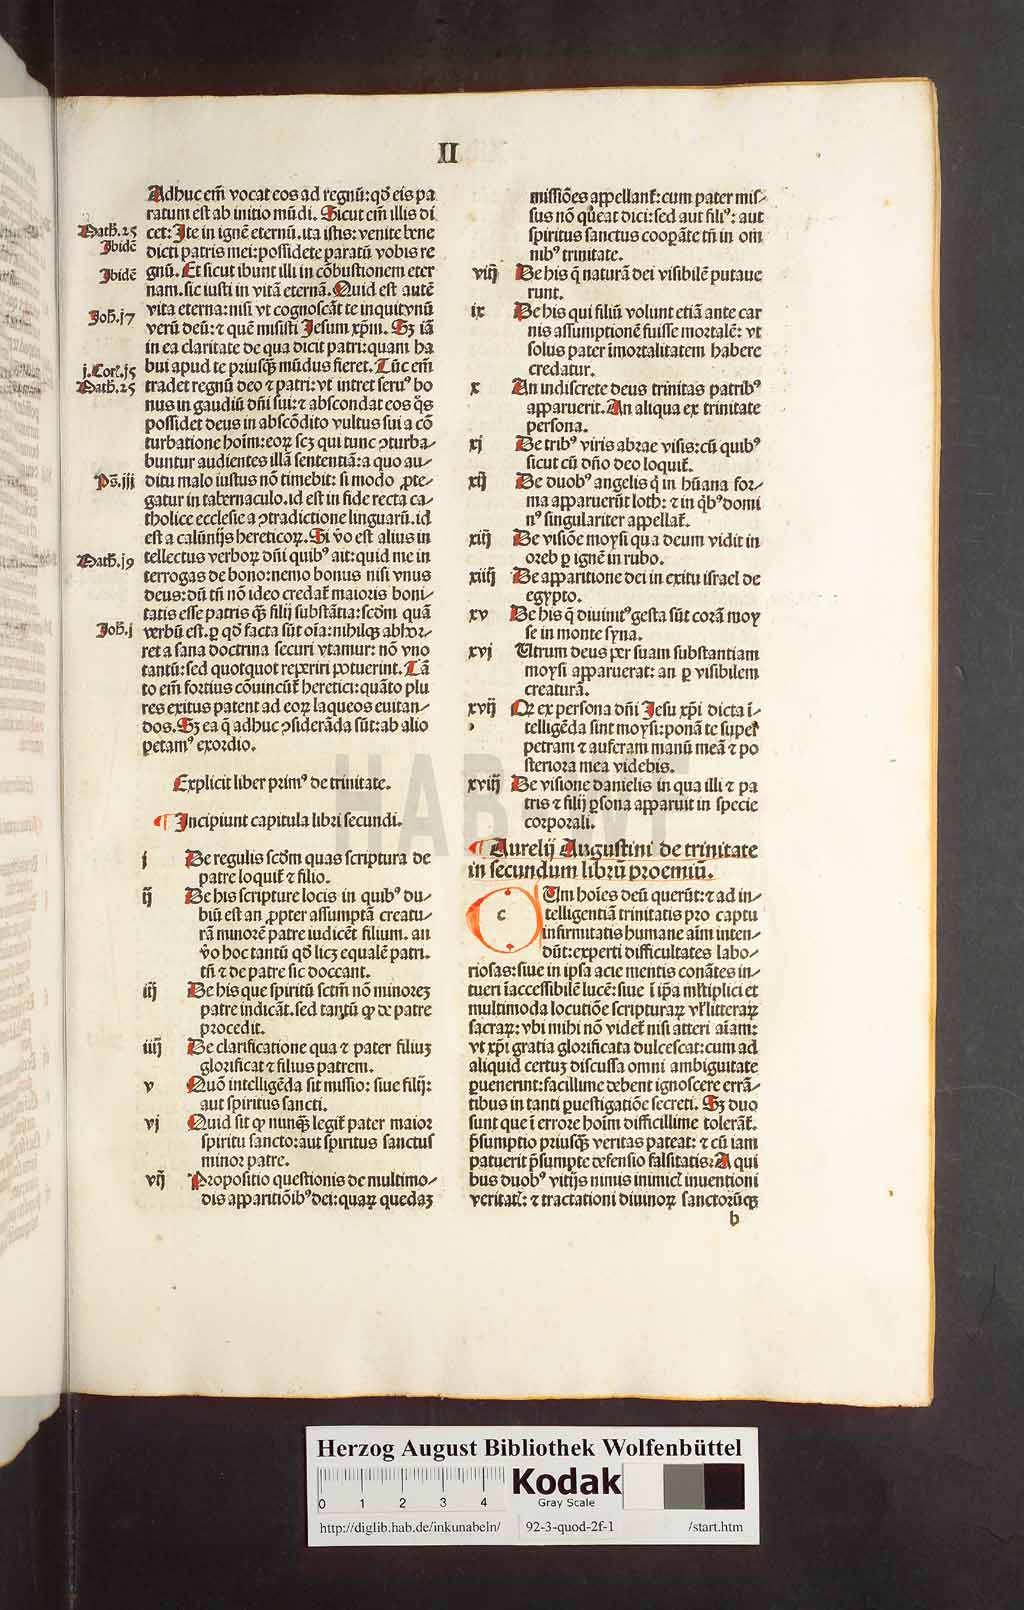 II
Adhuc em̄ vocat eos ad regnū: qđ eis pa
ratum est ab initio mūdi. Sicut em̄ illis di
Math. 25
cet: Ite in ignē eternū. ita istis: venite bene
Ibidē
dicti patris mei: possidete paratū vobis re
Ibidē
gnū. Et sicut ibunt illi in cōbustionem eter
nam. sic iusti in vitā eternā. Quid est autē
vita eterna: nisi vt cognoscāt te inquit vnū
Joh̄. j7
verū deū: ⁊ quē misisti Jesum xp̄m. Sꝫ iā
in ea claritate de qua dicit patri: quam ha
j. Cor. j5
bui apud te priusqꝫ mūdus fieret. Tūc em̄
Math. 25
tradet regnū deo ⁊ patri: vt intret seruꝰ bo
nus in gaudiū dn̄i sui: ⁊ abscondat eos q̊s
possidet deus in abscōdito vultus sui a cō
turbatione hoīm: eoꝝ scꝫ qui tunc ꝯturba-
buntur audientes illā sententiā: a quo au-
Ps. iij
ditu malo iustus nō timebit: si modo ꝓte-
gatur in tabernaculo. id est in fide recta ca-
tholice ecclesie a ꝯtradictione linguarū. id
est a calūnijs hereticoꝝ. Si v̊o est alius in
Math. j9
tellectus verboꝝ dn̄i quibꝰ ait: quid me in
terrogas de bono: nemo bonus nisi vnus
deus: dū tn̄ nō ideo credat̄ maioris boni-
tatis esse patris qꝫ filij substātia: scđm quā
Joh̄. j
verbū est. ꝑ qđ facta sūt oīa: nihilqꝫ abhor-
ret a sana doctrina securi vtamur: nō vno
tantū: sed quotquot reperiri potuerint. Tā
to em̄ fortius cōuincūt̄ heretici: quāto plu
res exitus patent ad eoꝝ laqueos euitan-
dos. Sꝫ ea q̄ adhuc ꝯsiderāda sūt: ab alio
petamꝰ exordio.
Explicit liber primꝰ de trinitate.
¶ Incipiunt capitula libri secundi.
j De regulis scđm quas scriptura de
patre loquit̄ ⁊ filio.
ij De his scripture locis in quibꝰ du-
biū est an ꝓpter assumptā creatu-
rā minorē patre iudicēt filium. an
v̊o hoc tantū qđ licꝫ equalē patri.
tn̄ ⁊ de patre sic doceant.
iij De his que spiritū sctm̄ nō minoreꝫ
patre indicāt. sed tantū ꝙ de patre
procedit.
iiij De clarificatione qua ⁊ pater filiuꝫ
glorificat ⁊ filius patrem.
v Quō intelligēda sit missio: siue filij:
aut spiritus sancti.
vj Quid sit ꝙ nunqꝫ legit̄ pater maior
spiritu sancto: aut spiritus sanctus
minor patre.
vij Propositio questionis de multimo-
dis apparitiōibꝰ dei: quaꝝ quedaꝫ
missiōes appellant̄: cum pater mis-
sus nō queat dici: sed aut filiꝰ: aut
spiritus sanctus cooperāte tn̄ in om̄
nibꝰ trinitate.
viij De his q̄ naturā dei visibilē putaue
runt.
ix De his qui filiū volunt etiā ante car
nis assumptionē fuisse mortalē: vt
solus pater īmortalitatem habere
credatur.
x An indiscrete deus trinitas patribꝰ
apparuerit. An aliqua ex trinitate
persona.
xj De tribꝰ viris abrae visis: cū quibꝰ
sicut cū dn̄o deo loquit̄.
xij De duobꝰ angelis q̄ in hūana for-
ma apparuerūt loth: ⁊ in q̄bꝰ domi
nꝰ singulariter appellat̄.
xiij De visiōe moysi qua deum vidit in
oreb ꝑ ignē in rubo.
xiiij De apparitione dei in exitu israel de
egypto.
xv De his q̄ diuinitꝰ gesta sūt corā moy
se in monte syna.
xvj Utrum deus per suam substantiam
moysi apparuerat: an ꝑ visibilem
creaturā.
xvij Qꝛ ex persona dn̄i Jesu xp̄i dicta ī-
telligēda sint moysi: ponā te super
petram ⁊ auferam manū meā ⁊ po
steriora mea videbis.
xviij De visione danielis in qua illi ⁊ pa
tris ⁊ filij ꝑsona apparuit in specie
corporali.
¶ Aurelij Augustini de trinitate
in secundum librū proemiū.
c Um hoīes deū querūt: ⁊ ad in-
telligentiā trinitatis pro captu
infirmitatis humane aīm inten-
dūt: experti difficultates labo-
riosas: siue in ipsa acie mentis conātes in-
tueri īaccessibilē lucē: siue ī ip̄a ml̄tiplici et
multimoda locutiōe scripturaꝝ vl̄ litteraꝝ
sacraꝝ: vbi mihi nō videt̄ nisi atteri aīam:
vt xp̄i gratia glorificata dulcescat: cum ad
aliquid certuꝫ discussa omni ambiguitate
ꝑuenerint: facillime debent ignoscere errā-
tibus in tanti ꝑuestigatiōe secreti. Sꝫ duo
sunt que ī errore hoīm difficillime tolerāt̄.
p̄sumptio priusqꝫ veritas pateat: ⁊ cū iam
patuerit p̄sumpte defensio falsitatis: A qui
bus duobꝰ vitijs nimis inimicꝭ inuentioni
veritatꝭ: ⁊ tractationi diuinoꝝ sanctorūqꝫ
b
HAB WF
Herzog August Bibliothek Wolfenbüttel
0 1 2 3 4
Kodak
Gray Scale
http://diglib.hab.de/inkunabeln/ 92-3-quod-2f-1 /start.htm